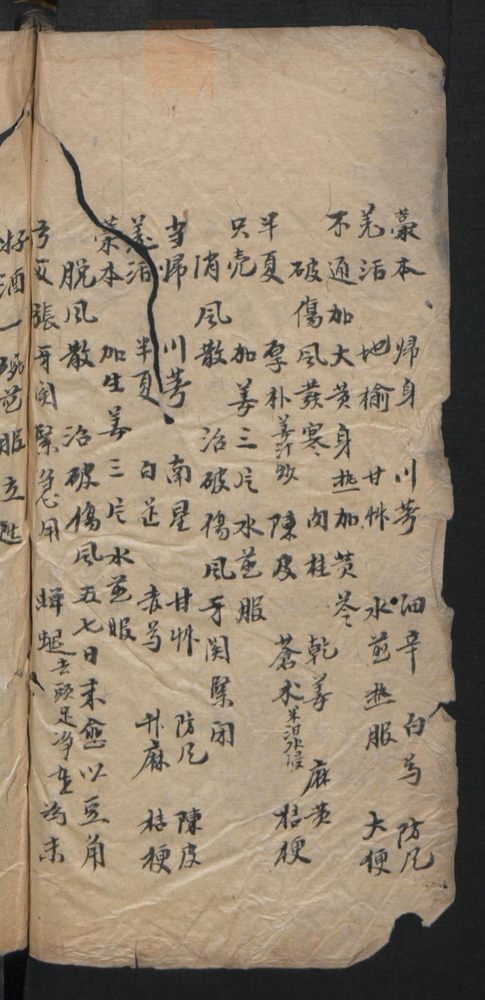 藁本 歸身 川芎 細辛 白芍 防風
羌活 地榆 甘艸 水煎热服 大便
不通加大黄身热加黄芩
破傷風發寒 肉桂 乾姜 麻黄
半夏 厚朴姜汁炒 陳皮 蒼术米泔水浸 桔梗
只壳 加姜三片水煎服
消風散 治破傷風牙関緊闭
当歸 川芎 南星 甘艸 防風 陳皮
羌活 半夏 白芷 赤芍 升麻 桔梗
藁本 加生姜三片水煎服
脱風散 治破傷風五七日未愈以豆角
弓反張牙関緊急用 蟬蜕去頭足净 為末
好酒一碗煎服立